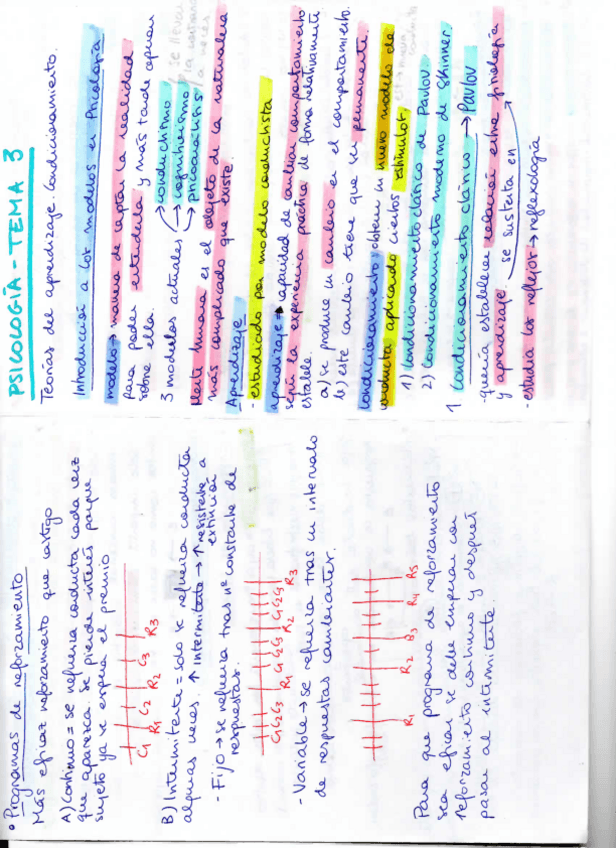 PSICOLOGÍA - TEMA 3
Teorías del aprendizaje. Condicionamiento.
Introducción a los modelos en Psicología
modelo → manera de captar la realidad
para poder entenderla y más tarde actuar
sobre ella.
3 modulos actuales → conductismo
→ cognitivismo
→ psicoanálisis
se llevan
la contraria
a veces
Mente humana es el objeto de la naturaleza
más complicado que existe.
Aprendizaje
- estudiado por modelo conductista
aprendizaje → capacidad de cambiar comportamiento
según la experiencia práctica de forma relativamente
estable.
a) se produce un cambio en el comportamiento.
b) este cambio tiene que ser permanente.
condicionamiento: obtener un nuevo modelo de
conducta aplicando ciertos estímulos.
1) Condicionamiento clásico de Pavlov.
2) Condicionamiento moderno de Skinner.
1 Condicionamiento clásico → Pavlov
- quería establecer relación entre fisiología
y aprendizaje. se sustenta en
- estudia los reflejos → reflexología
• Programas de reforzamiento
Más eficaz reforzamiento que castigo
A) Continuo = se refuerza conducta cada vez
que aparezca. Se pierde interés porque
sujeto ya se espera el premio
C1 R1 C2 R2 C3 R3
B) Intermitente = sólo se refuerza conducta
algunas veces. ↑ intermitente → ↑ resistente a
extinción
- Fijo → se refuerza tras nº constante de
respuestas.
C1 C2 C3 R1 C1 C2 C3 R2 C1 C2 C3 R3
- Variable → se refuerza tras un intervalo
de respuestas cambiantes.
R1 R2 R3 R4 R5
Para que programa de reforzamiento
sea eficaz se debe empezar con
reforzamiento continuo y después
pasar al intermitente.